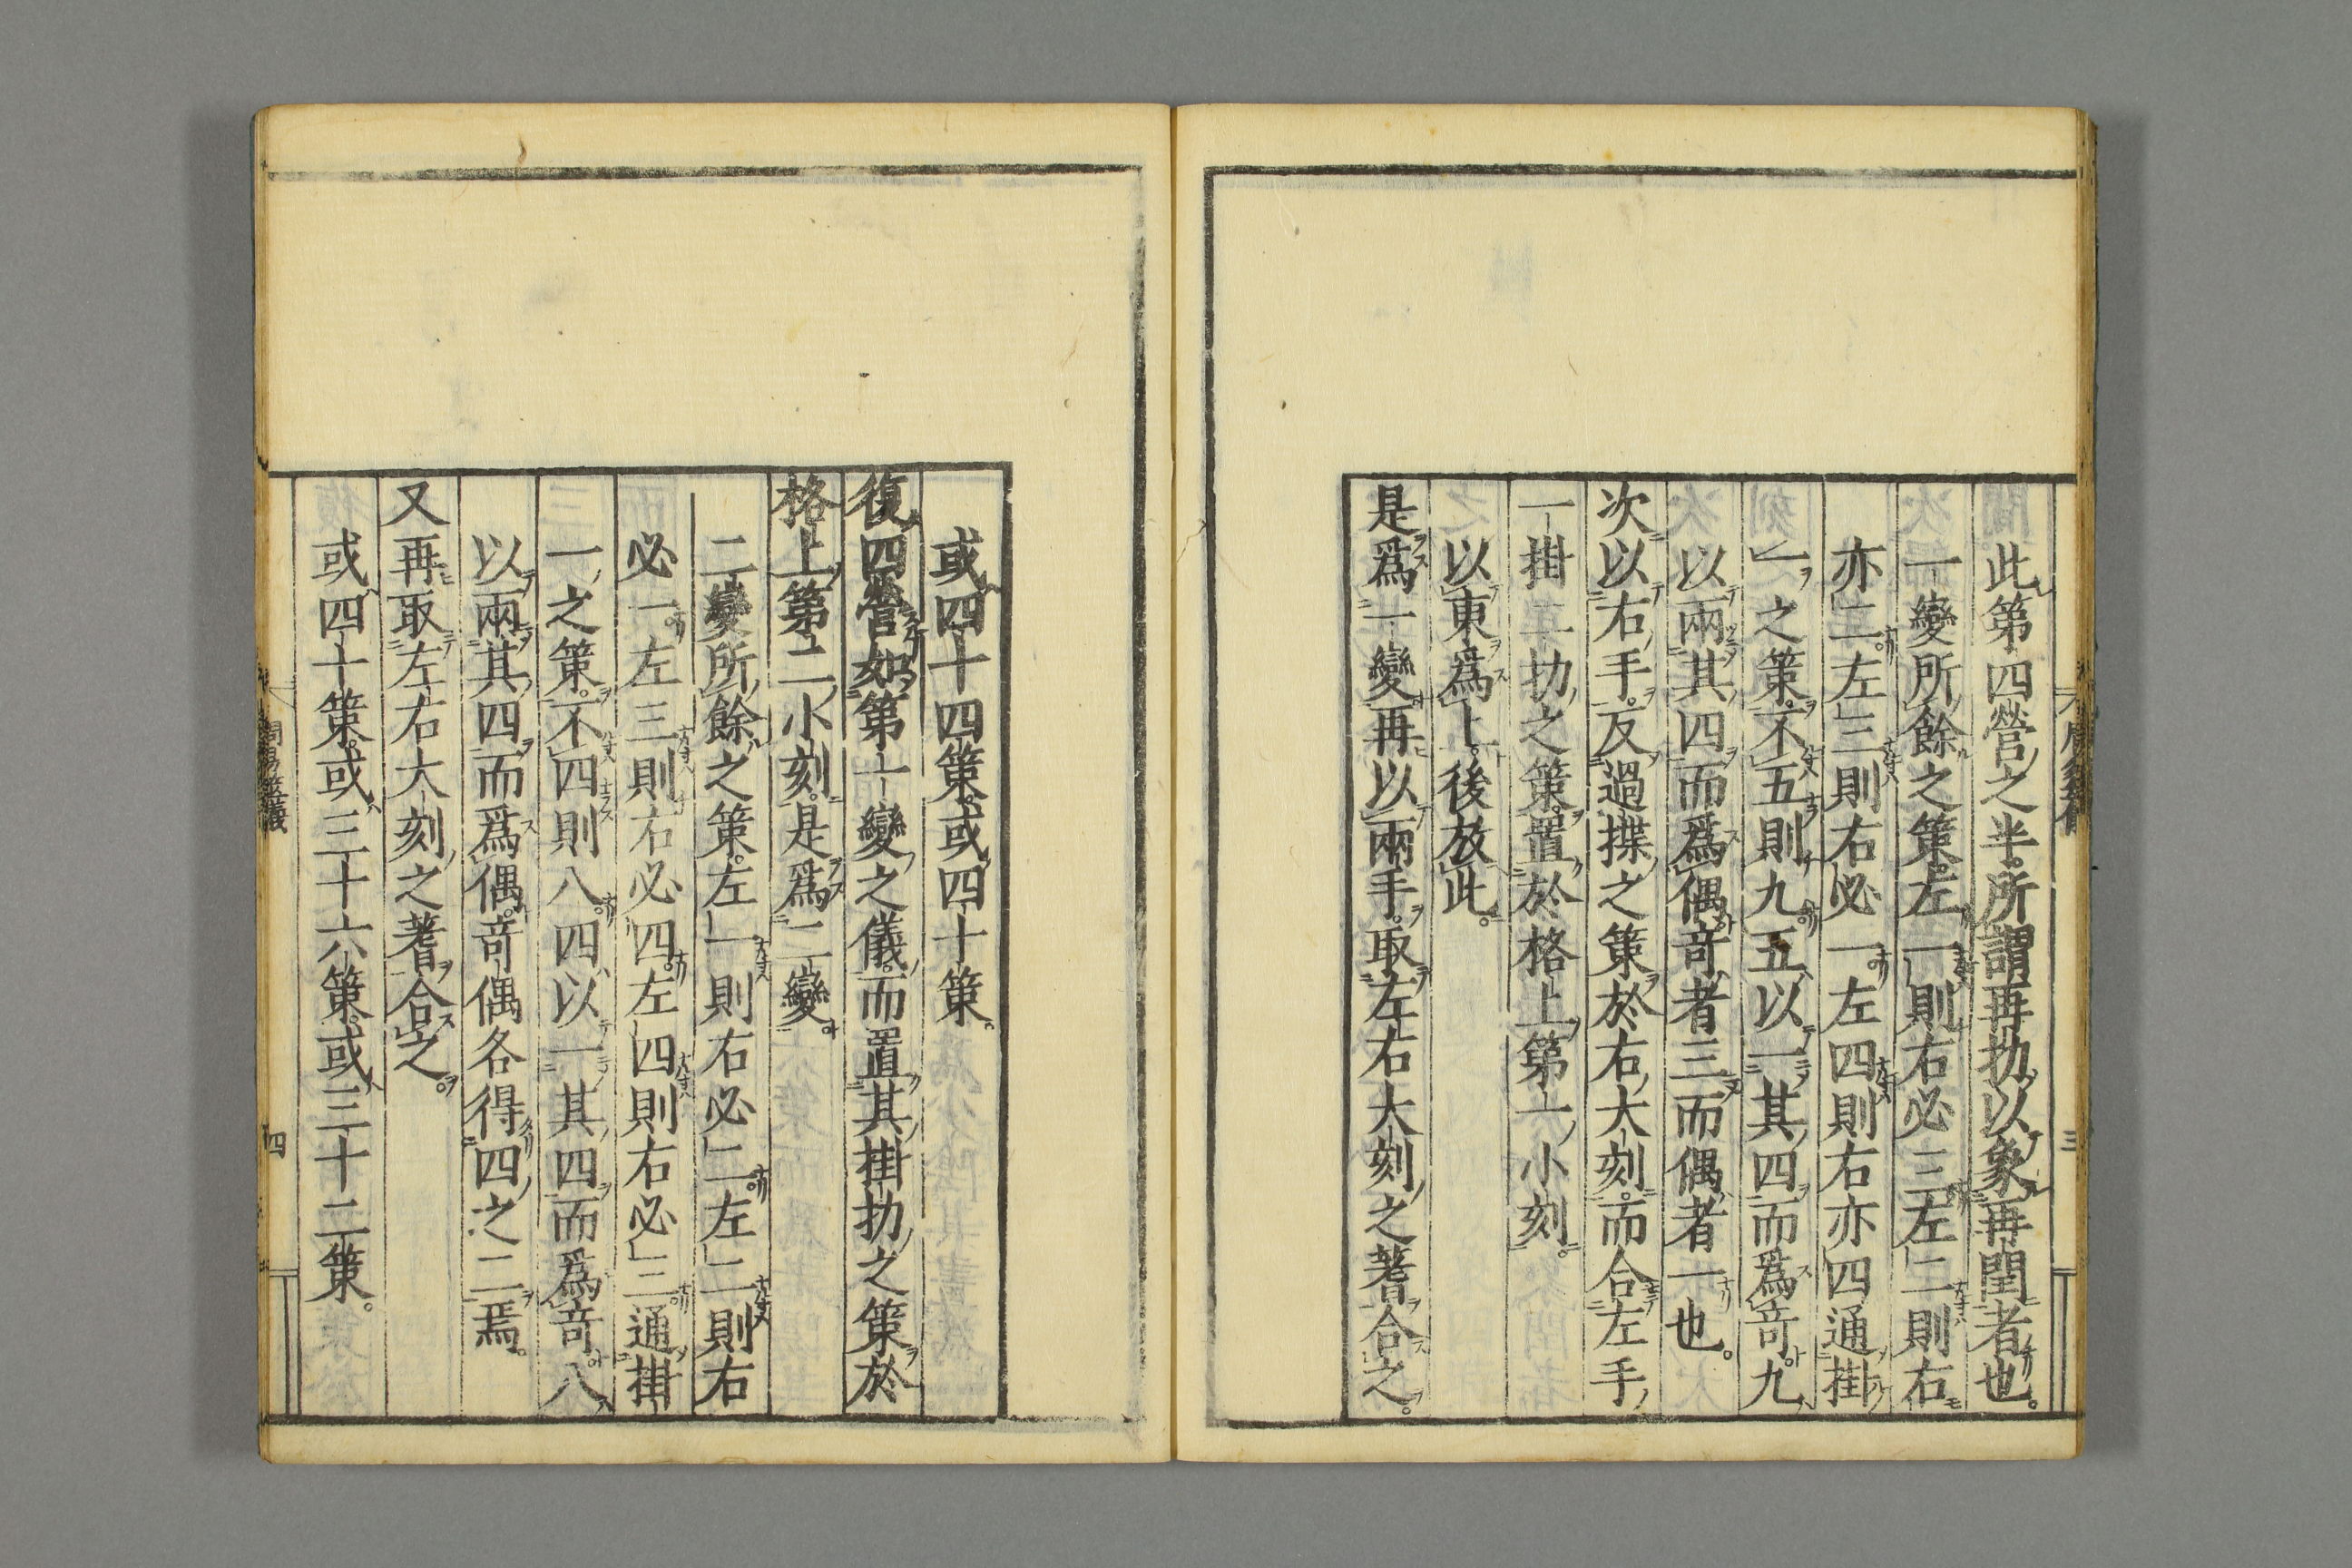 此第四營之半。所謂再扐以象再閏者也。
一變所餘之策。左一則右必三。左二則右
亦二。左三則右必一。左四則右亦四。通掛
一之策。不五則九。五以一其四而爲奇。九
以兩其四而爲偶。奇者三而偶者一也。
次以右手。反過揲之策於右大刻。而合左手
一掛二扐之策。置於格上第一小刻。
以東爲上。後放此。
是爲一變。再以兩手。取左右大刻之蓍合之。
三
或四十四策。或四十策。
復四營如第一變之儀。而置其掛扐之策於
格上第二小刻。是爲二變。
二變所餘之策。左一則右必二。左二則右
必一。左三則右必四。左四則右必三。通掛
一之策。不四則八。四以一其四而爲奇。八
以兩其四而爲偶。奇偶各得四之二焉。
又再取左右大刻之蓍合之。
或四十策。或三十六策。或三十二策。
周易筮儀
四